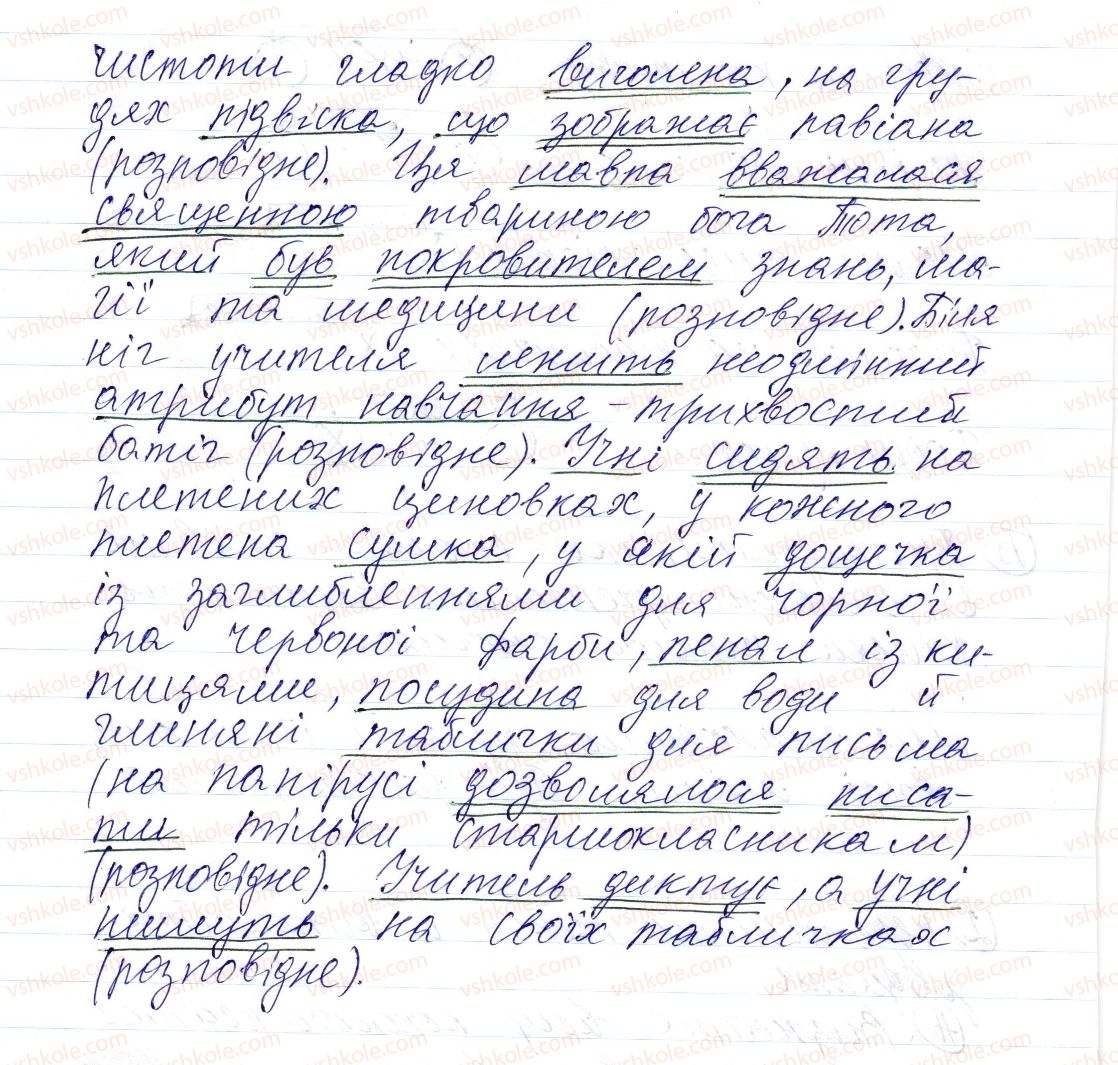 чистоти гладко виголена, на гру-
дях підвіска, що зображає павіана
(розповідне). Ця мавпа вважалася
священною твариною бога Тота,
який був покровителем знань, ма-
гії та медицини (розповідне). Біля
ніг учителя лежить неодмінний
атрибут навчання – трихвостий
батіг (розповідне). Учні сидять на
плетених циновках, у кожного
плетена сумка, у якій дощечка
із заглибленнями для чорної
та червоної фарби, пенал із ки-
тицями, посудина для води й
глиняні таблички для письма
(на папірусі дозволялося писа-
ти тільки старшокласникам)
(розповідне). Учитель диктує, а учні
пишуть на своїх табличках
(розповідне).